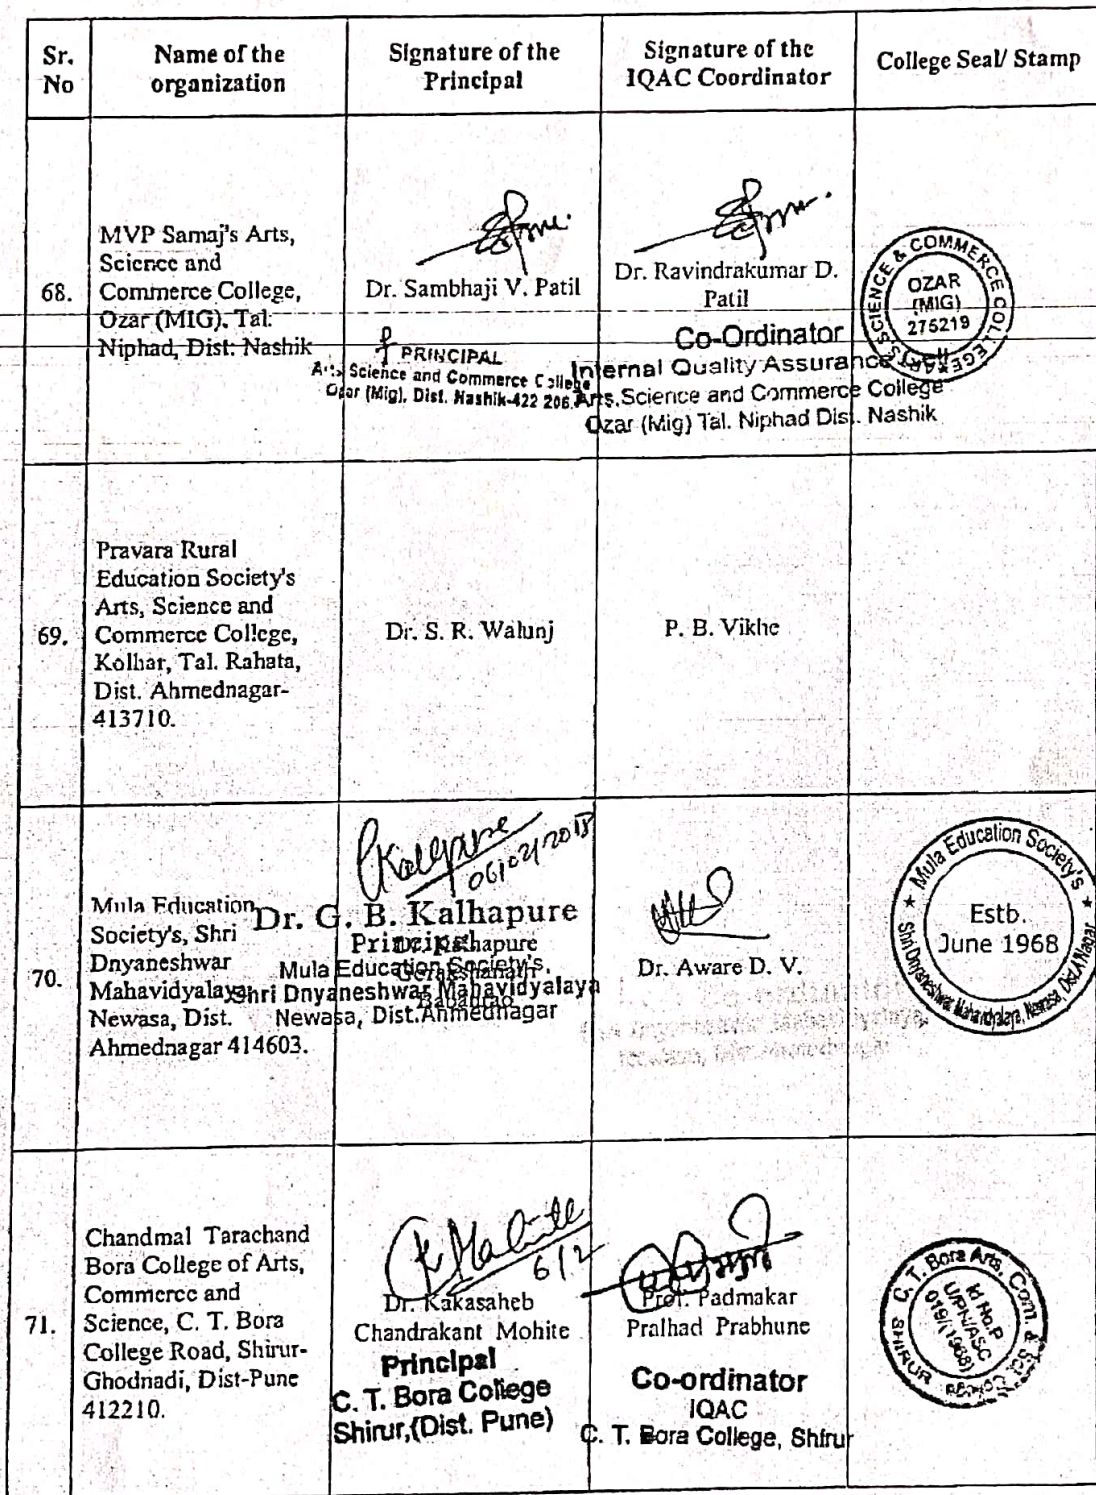 Sr. No
Name of the organization
Signature of the Principal
Signature of the IQAC Coordinator
College Seal/ Stamp
68.
MVP Samaj's Arts,
Science and
Commerce College,
Ozar (MIG), Tal:
Niphad, Dist: Nashik
Dr. Sambhaji V. Patil
PRINCIPAL
Arts Science and Commerce College
Ozar (Mig), Dist. Nashik-422 206.
Dr. Ravindrakumar D.
Patil
Co-Ordinator
Internal Quality Assurance Cell
Arts, Science and Commerce College
Ozar (Mig) Tal. Niphad Dist. Nashik
ARTS SCIENCE & COMMERCE COLLEGE
OZAR
(MIG)
275219
69.
Pravara Rural
Education Society's
Arts, Science and
Commerce College,
Kolhar, Tal. Rahata,
Dist. Ahmednagar-
413710.
Dr. S. R. Walunj
P. B. Vikhe
70.
Mula Education
Society's, Shri
Dnyaneshwar
Mahavidyalaya
Newasa, Dist.
Ahmednagar 414603.
Kalapure
06/02/2018
Dr. G. B. Kalhapure
Principal
Mula Education Society's,
Shri Dnyaneshwar Mahavidyalaya
Newasa, Dist.Ahmednagar
Dr. Kalhapure
Gorakshanath
Babanrao
Dr. Aware D. V.
Mula Education Society's
Estb.
June 1968
Shri Dnyaneshwar Mahavidyalaya, Newasa, Dist.A.Nagar
71.
Chandmal Tarachand
Bora College of Arts,
Commerce and
Science, C. T. Bora
College Road, Shirur-
Ghodnadi, Dist-Pune
412210.
K Mohite
6/2
Dr. Kakasaheb
Chandrakant Mohite
Principal
C. T. Bora College
Shirur,(Dist. Pune)
Prof. Padmakar
Pralhad Prabhune
Co-ordinator
IQAC
C. T. Bora College, Shirur
C. T. Bora Arts, Com. & Sci. College SHIRUR
Id No.P
U/PN/ASC
019/(1968)